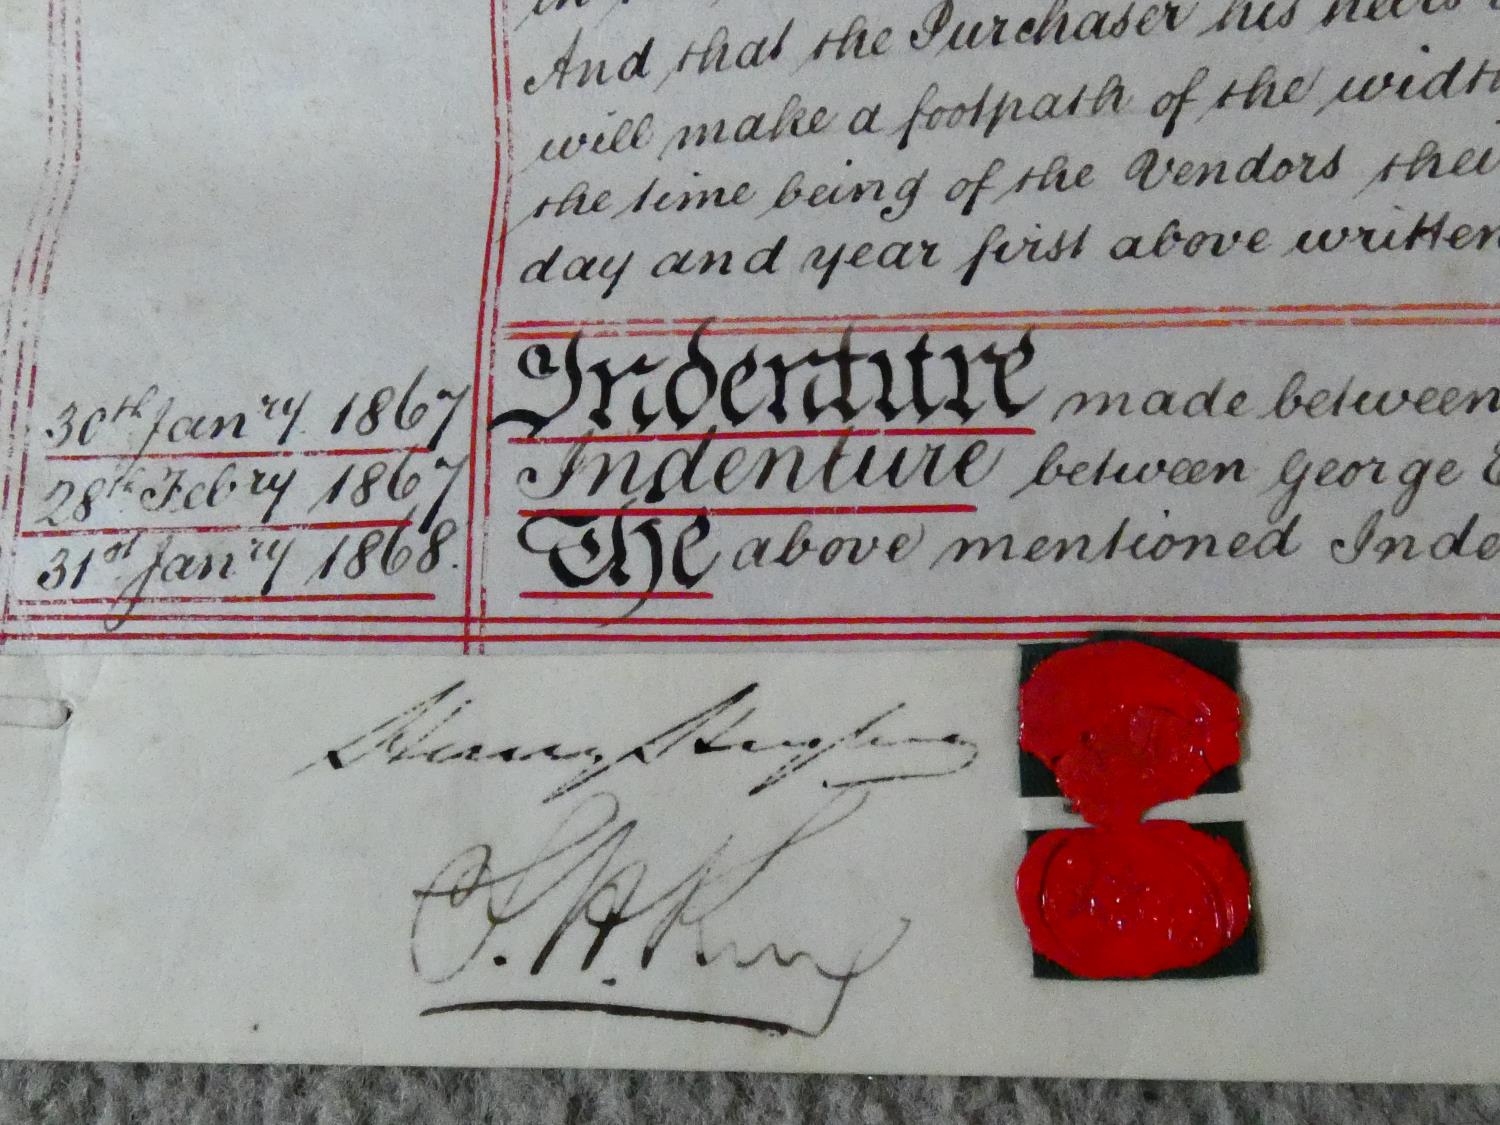 And that the Purchaser his heirs
will make a footpath of the width
the time being of the Vendors their
day and year first above written
30th Janry 1867 Indenture made between
28th Febry 1867 Indenture between George
31st Janry 1868. The above mentioned Inde
Henry
F. H. King